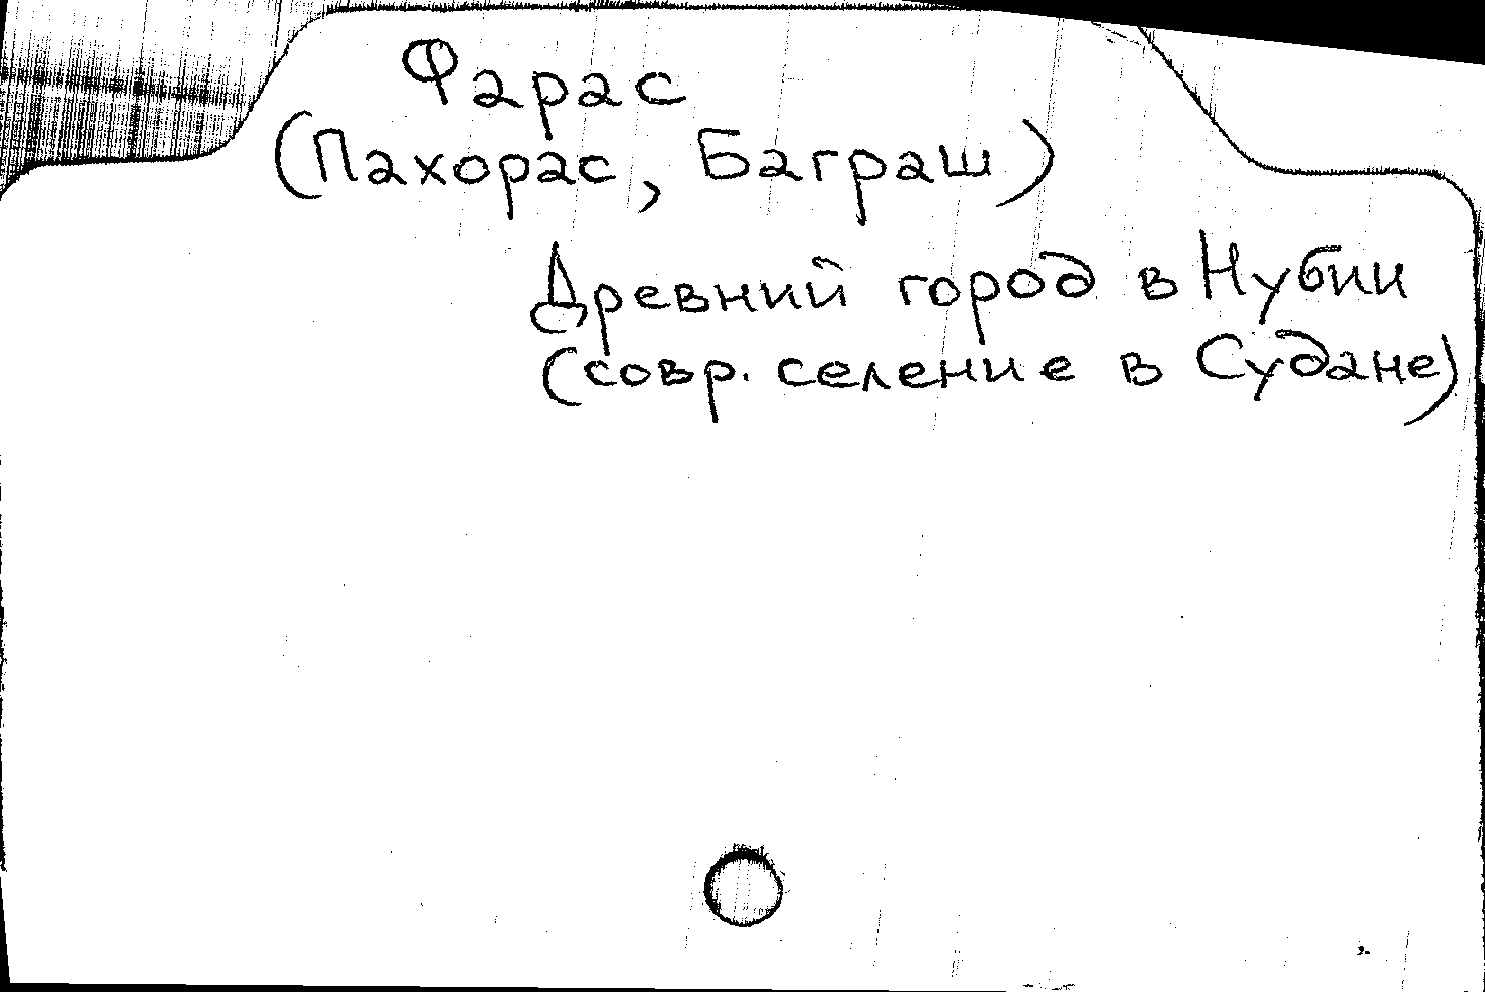 Фарас
(Пахорас, Баграш)
Древний город в Нубии
(совр. селение в Судане)